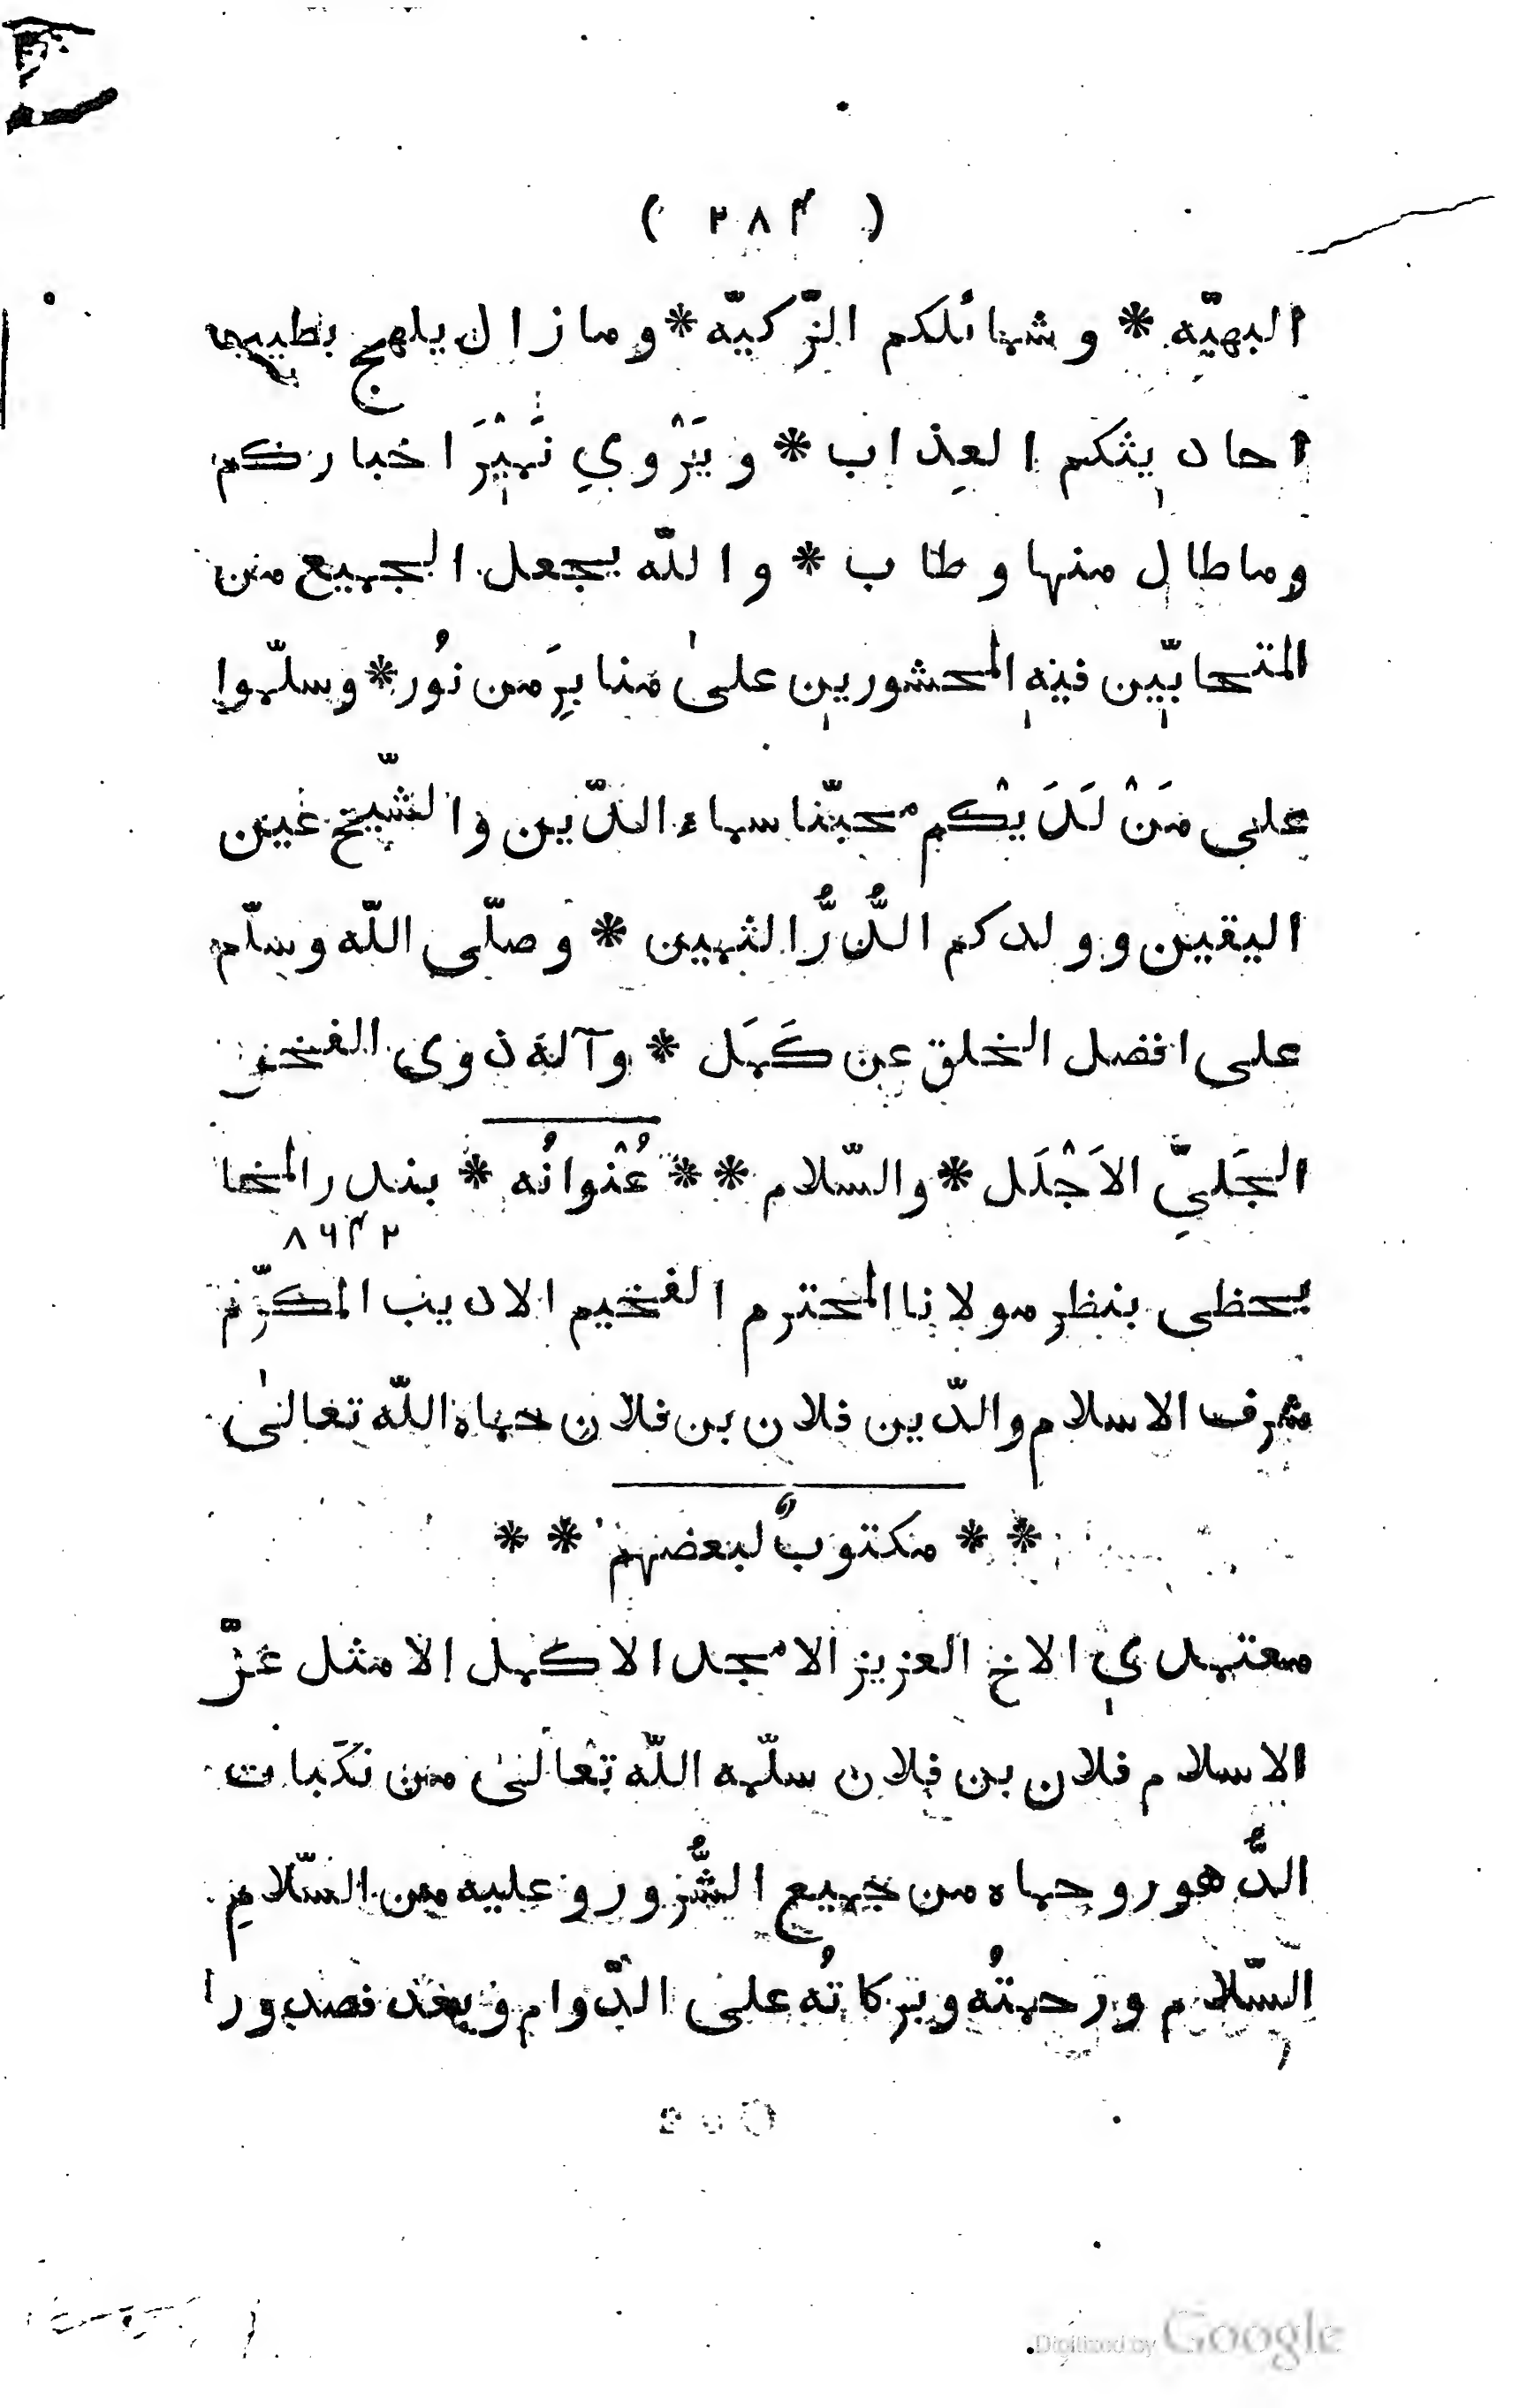 ( ٢٨٤ )
البهيّه * وشمائلكم الزّكيّه * وما زال يلهج بطيب
احاديثكم العِذاب * ويَرْوي نَمِيْرَ اخباركم
وما طال منها وطاب * والله يجعل الجميع من
المتحابّين فيه المحشورين علىٰ منابِرَ من نُور * وسلّموا
على مَنْ لَدَيْكم محبّنا سماء الدّين والشّيخ عين
اليقين وولدكم الدُّرُّ الثمين * وصلّى اللّه وسلّم
على افضل الخلق عن كَمَل * وآله ذوي الفخر
الجَليِّ الاَجْلَل * والسّلام * * عُنْوانُه * بندر المخا
٨٦٤٢
يحظى بنظر مولانا المحترم الفخيم الاديب المكرّم
شرف الاسلام والدّين فلان بن فلان حماه اللّه تعالىٰ
* * مكتوبٌ لبعضهم * *
معتمدي الاخ العزيز الامجد الاكمل الامثل عزّ
الاسلام فلان بن فلان سلّمه اللّه تعالىٰ من نكبات
الدُّهور وحماه من جميع الشُّرور وعليه من السّلامِ
السّلام ورحمتُه وبركاتُه على الدّوام وبعد فصدورا
Digitized by Google